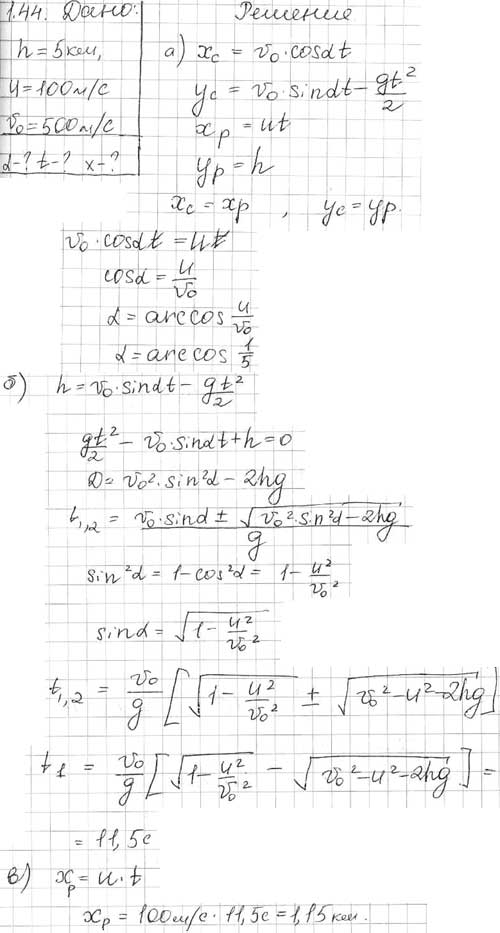 1.44. Дано:
h = 5км,
u = 100м/с
v₀ = 500м/с
α-? t-? x-?
Решение
а) x_c = v₀·cosαt
y_c = v₀·sinαt - gt²/2
x_p = ut
y_p = h
x_c = x_p , y_c = y_p.
v₀·cosαt = ut
cosα = u/v₀
α = arccos u/v₀
α = arccos 1/5
б) h = v₀·sinαt - gt²/2
gt²/2 - v₀·sinαt + h = 0
D = v₀²·sin²α - 2hg
t₁,₂ = (v₀·sinα ± √(v₀²·sin²α - 2hg))/g
sin²α = 1 - cos²α = 1 - u²/v₀²
sinα = √(1 - u²/v₀²)
t₁,₂ = v₀/g [√(1 - u²/v₀²) ± √(v₀² - u² - 2hg)]
t₁ = v₀/g [√(1 - u²/v₀²) - √(v₀² - u² - 2hg)] =
= 11,5с
в) x_p = u·t
x_p = 100м/с · 11,5с = 1,15км.